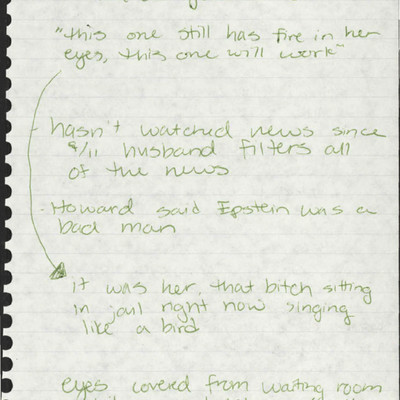 "this one still has fire in her
eyes, this one will work"
- hasn't watched news since
9/11 husband filters all
of the news
· Howard said Epstein was a
bad man
it was her, that bitch sitting
in jail right now singing
like a bird
eyes covered from waiting room